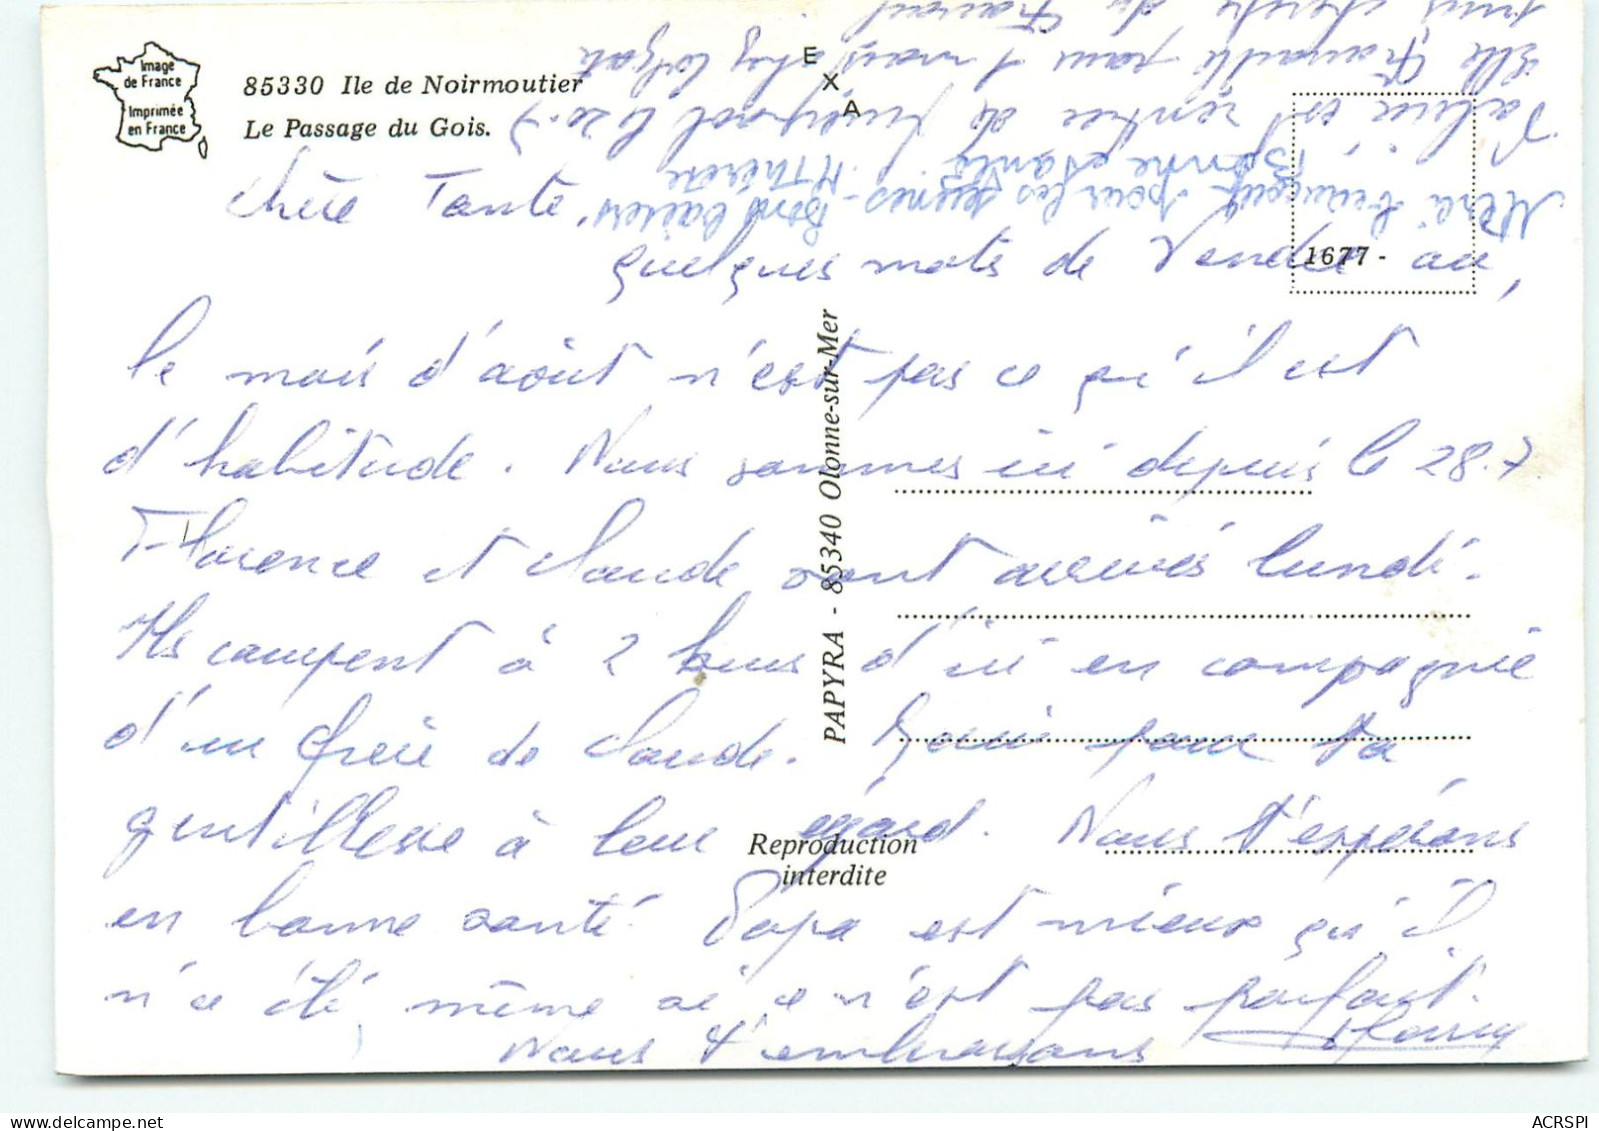 Image
de France
Imprimée
en France
85330 Ile de Noirmoutier
Le Passage du Gois.
E
X
A
1677-
PAPYRA - 85340 Olonne-sur-Mer
Reproduction
interdite
Chère Tante,
quelques mots de Vendée où,
le mois d'août n'est pas ce qu'il est
d'habitude. Nous sommes ici depuis le 28.7
Florence et Claude sont arrivés lundi.
Ils campent à 2 kms d'ici en compagnie
d'un frère de Claude. pour ta
gentillesse à leur égard. Nous t'espérons
en bonne santé. Papa est mieux qu'il
n'a été, même si ce n'est pas parfait.
Nous t'embrassons
est rentrée de Liverpool le 20.7
Elle travaille pour 1 mois chez Colgate
puis cherche du travail
Merci beaucoup pour les jeunes - Bons baisers
Bonne santé. M Thérèse
ACRSPI